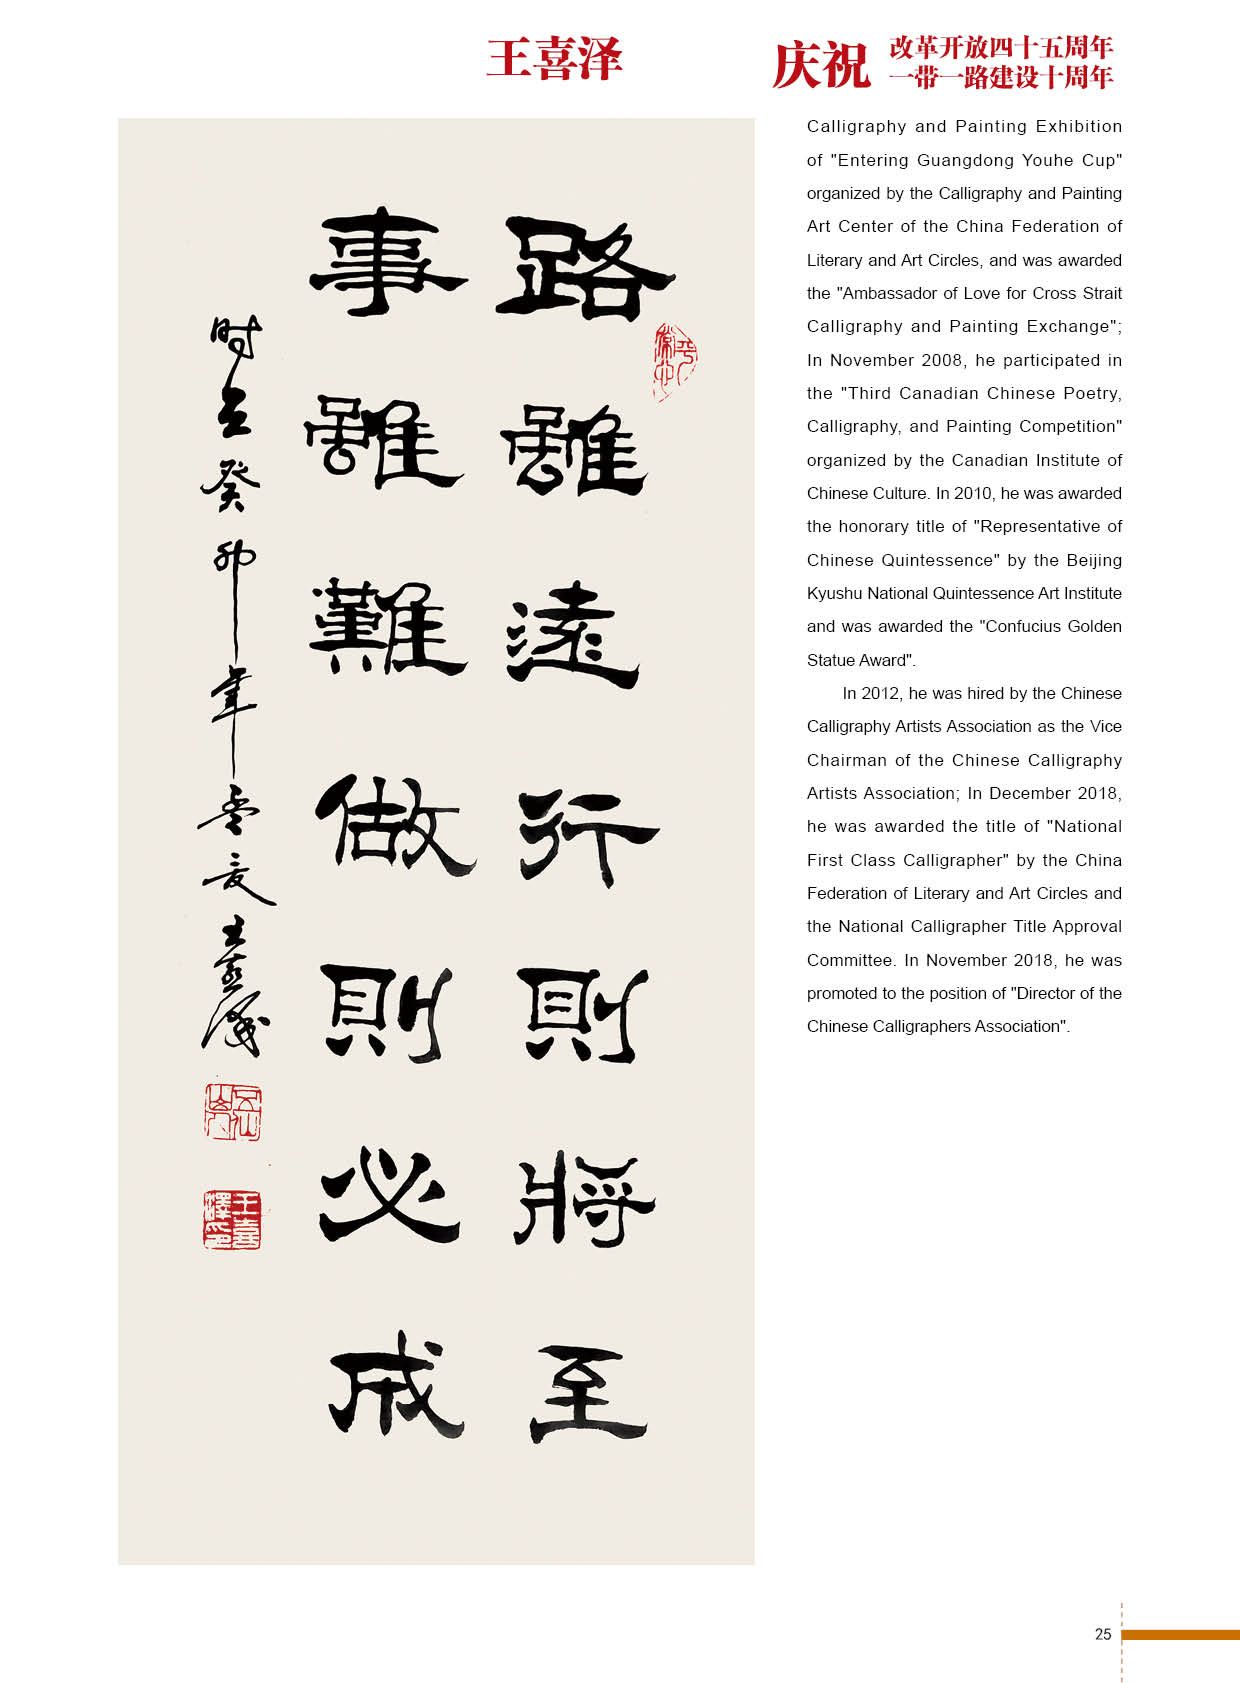 王喜泽
庆祝
改革开放四十五周年
一带一路建设十周年
路雖遠行則將至
事雖難做則必成
癸卯年
王喜澤
王喜澤印
Calligraphy and Painting Exhibition
of "Entering Guangdong Youhe Cup"
organized by the Calligraphy and Painting
Art Center of the China Federation of
Literary and Art Circles, and was awarded
the "Ambassador of Love for Cross Strait
Calligraphy and Painting Exchange";
In November 2008, he participated in
the "Third Canadian Chinese Poetry,
Calligraphy, and Painting Competition"
organized by the Canadian Institute of
Chinese Culture. In 2010, he was awarded
the honorary title of "Representative of
Chinese Quintessence" by the Beijing
Kyushu National Quintessence Art Institute
and was awarded the "Confucius Golden
Statue Award".
In 2012, he was hired by the Chinese
Calligraphy Artists Association as the Vice
Chairman of the Chinese Calligraphy
Artists Association; In December 2018,
he was awarded the title of "National
First Class Calligrapher" by the China
Federation of Literary and Art Circles and
the National Calligrapher Title Approval
Committee. In November 2018, he was
promoted to the position of "Director of the
Chinese Calligraphers Association".
25